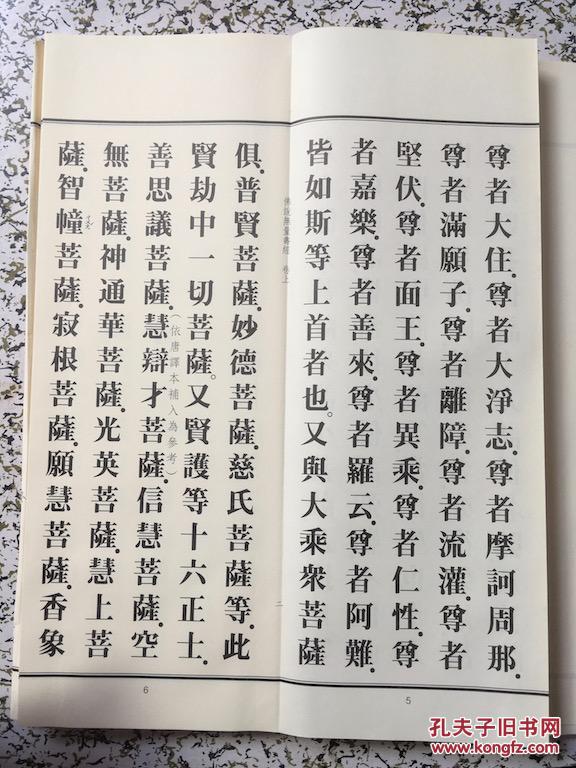 尊者大住。尊者大淨志。尊者摩訶周那。
尊者滿願子。尊者離障。尊者流灌。尊者
堅伏。尊者面王。尊者異乘。尊者仁性。尊
者嘉樂。尊者善來。尊者羅云。尊者阿難。
皆如斯等上首者也。又與大乘眾菩薩
佛說無量壽經 卷上
二
5
俱。普賢菩薩。妙德菩薩。慈氏菩薩等。此
賢劫中一切菩薩。又賢護等十六正士。
(依唐譯本補入為參考)
善思議菩薩。慧辯才菩薩。信慧菩薩。空
無菩薩。神通華菩薩。光英菩薩。慧上菩
薩。智幢菩薩。寂根菩薩。願慧菩薩。香象
6
孔夫子旧书网
www.kongfz.com